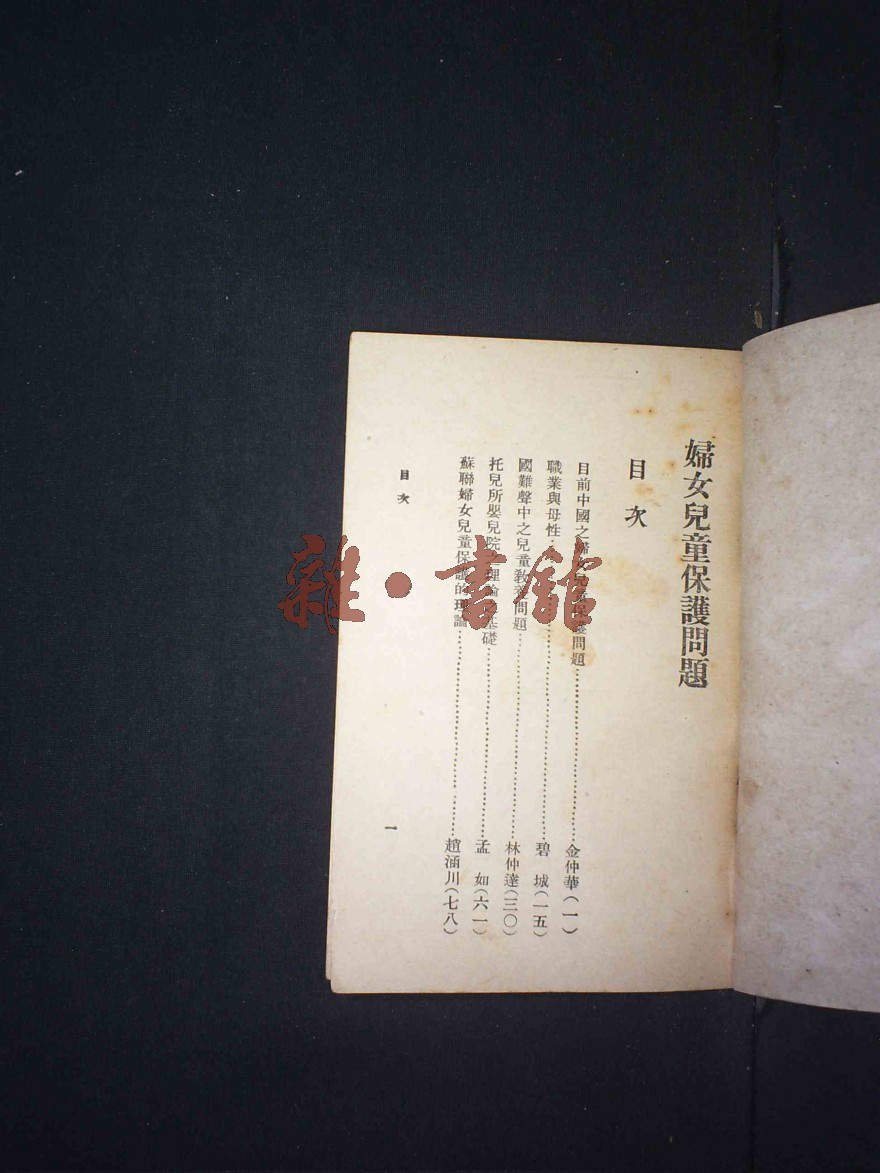 婦女兒童保護問題
目次
目前中國之婦女兒童保護問題……金仲華(一)
職業與母性……碧 城(一五)
國難聲中之兒童教養問題……林仲達(三〇)
托兒所嬰兒院之理論之基礎……孟 如(六一)
蘇聯婦女兒童保護的理論……趙涵川(七八)
目次
一
雜·書館